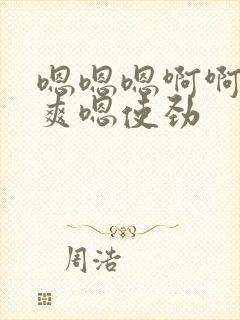 嗯嗯嗯啊啊
爽嗯使劲
周浩